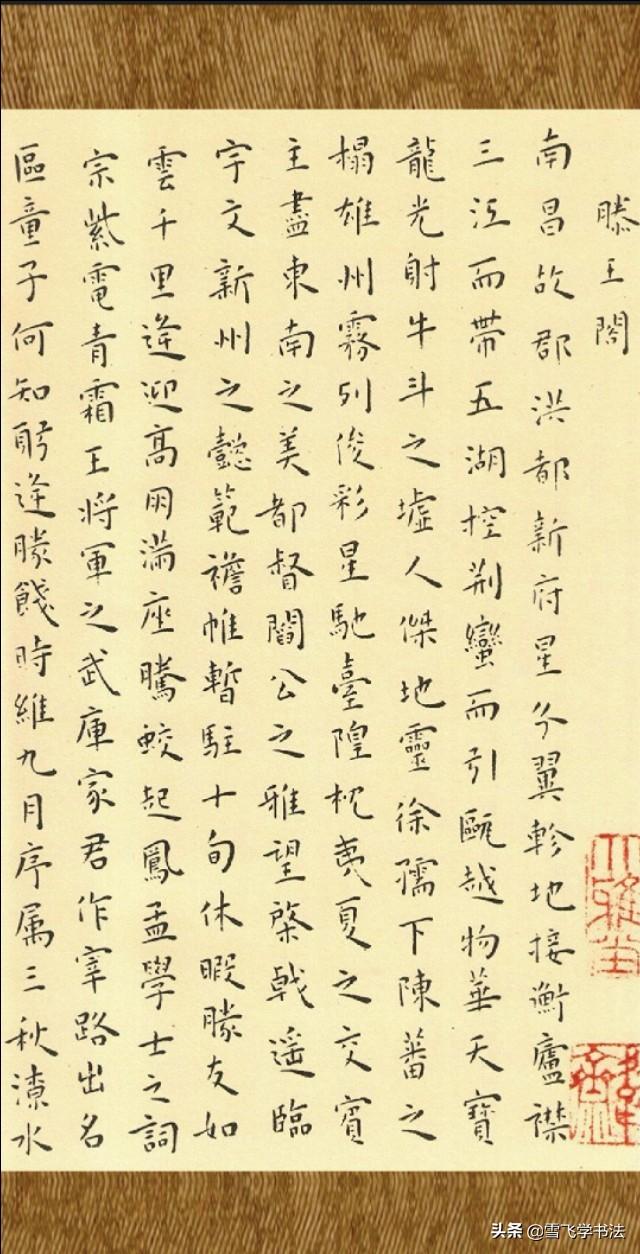 滕王閣
南昌故郡洪都新府星分翼軫地接衡廬襟
三江而帶五湖控荆蠻而引甌越物華天寶
龍光射牛斗之墟人傑地靈徐孺下陳蕃之
榻雄州霧列俊彩星馳臺隍枕夷夏之交賓
主盡東南之美都督閻公之雅望棨戟遥臨
宇文新州之懿範襜帷暫駐十旬休暇勝友如
雲千里逢迎高朋滿座騰蛟起鳳孟學士之詞
宗紫電青霜王將軍之武庫家君作宰路出名
區童子何知躬逢勝餞時維九月序属三秋潦水
头条 @雪飞学书法